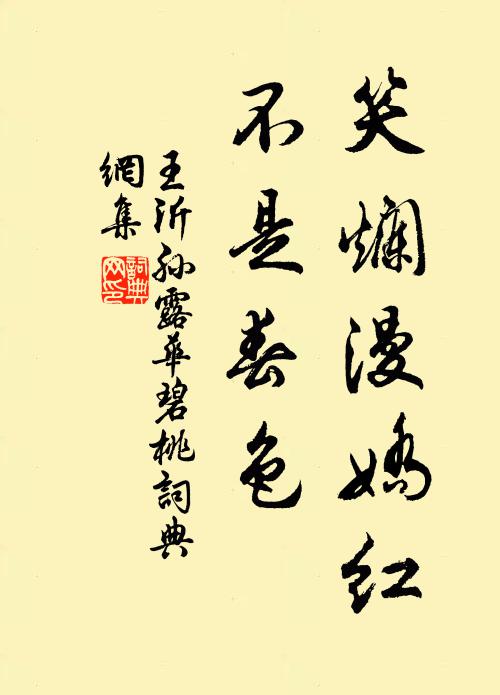 笑爛漫嬌紅
不是春色
王沂孫露華碧桃詞典
網集
詞典
网印